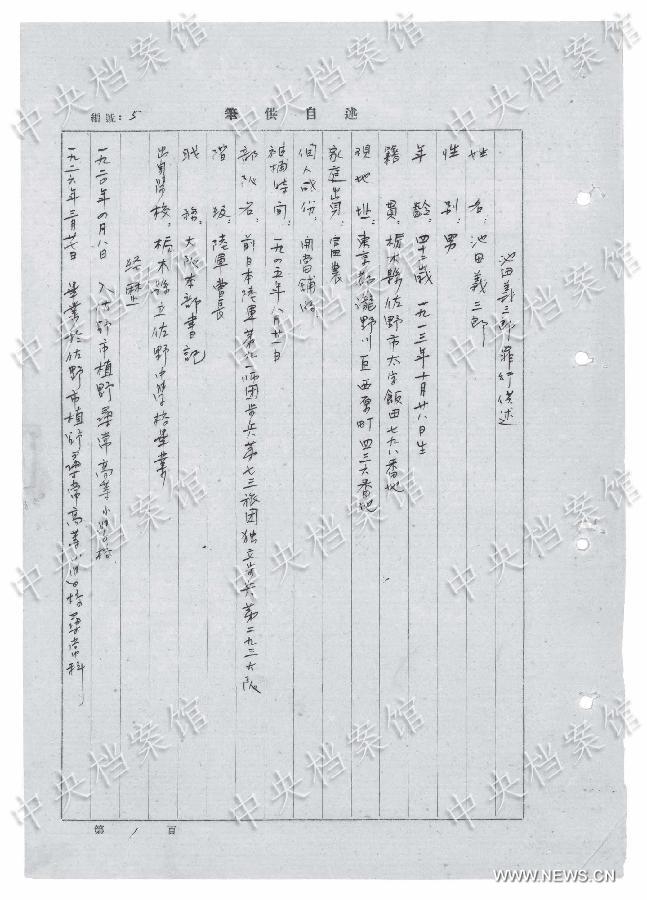 述自供筆
編號：5
池田義三郎罪行供述
姓名：池田義三郎
性別：男
年齡：四十二歲 一九一三年十月廿八日生
籍貫：栃木縣佐野市大字飯田七九八番地
現地址：東京都瀧野川區西原町四三六番地
家庭出身：富農
個人成份：開當舖
被捕時間：一九四五年八月廿一日
部隊名：前日本陸軍第九一師团步兵第七三旅团独立步兵第二九三大队
階級：陸軍曹長
職務：大队本部書記
出身學校：栃木縣立佐野中學校畢業
經歷
一九二〇年四月八日 入佐野市植野尋常高等小學校
一九二六年三月廿七日 畢業於佐野市植野尋常高等小學校尋常科
第1頁
中央档案馆
WWW.NEWS.CN